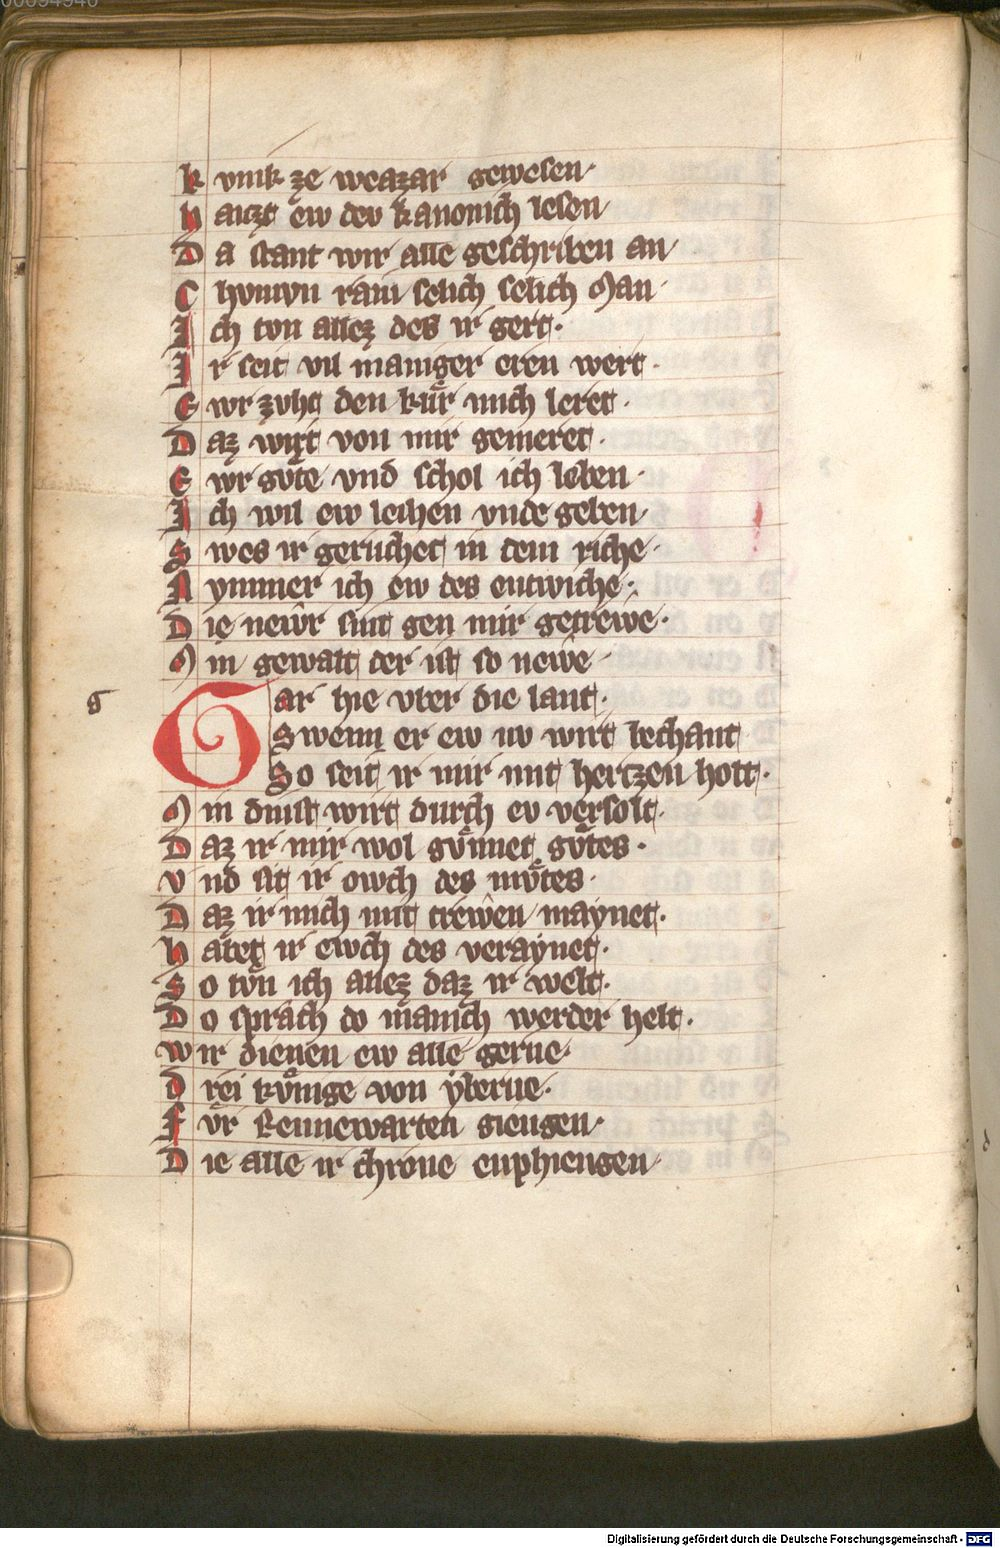 00094946
K vnik ze weazar gewesen·
H aizt ew dev kanonich lesen
D a stant wir alle geschriben an
C hvmvn rain selich selich Man·
I ch tvn allez des ir gert·
I r seit vil maniger eren wert·
E wr zvht den kür mich leret·
D az wirt von mir gemeret·
E wr gvte vnd schol ich leben·
I ch wil ew leihen vnde geben
S wes ir geruchet in dem riche·
N ymmer ich ew des entwiche·
D ie newr sint gen mir getrewe·
M in gewalt der ist so newe·
g
Gar hie vber die lant·
Swenn er ew nv wirt bechant
So seit ir mir mit hertzen holt·
M in dinst wirt durch ev versolt·
D az ir mir wol gvnnet gvtes·
V nd sit ir owch des mvtes·
D az ir mich mit trewen maynet·
H atet ir ewch des veraynet·
S o tvn ich allez daz ir welt·
D o sprach do manich werder helt·
W ir dienen ew alle gerne·
D rei kvnige von yberne·
F vr Rennewarten giengen·
D ie alle ir chrone enphiengen·
Digitalisierung gefördert durch die Deutsche Forschungsgemeinschaft - DFG